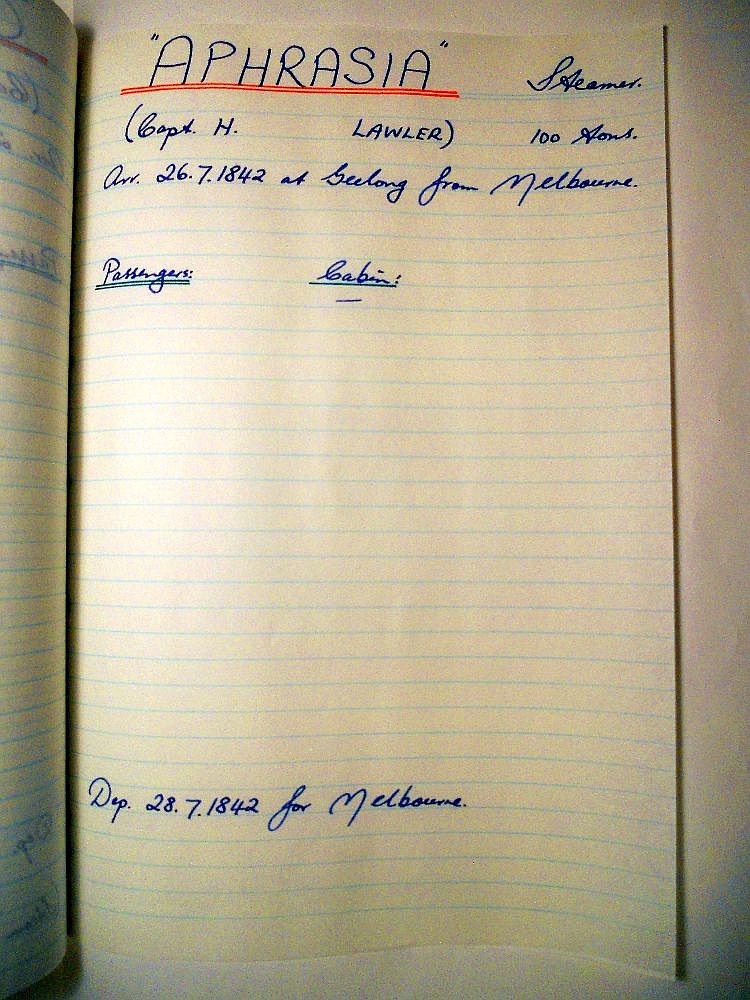 "APHRASIA" Steamer.
(Capt. H. LAWLER) 100 tons.
Arr. 26.7.1842 at Geelong from Melbourne.
Passengers: Cabin:
—
Dep. 28.7.1842 for Melbourne.